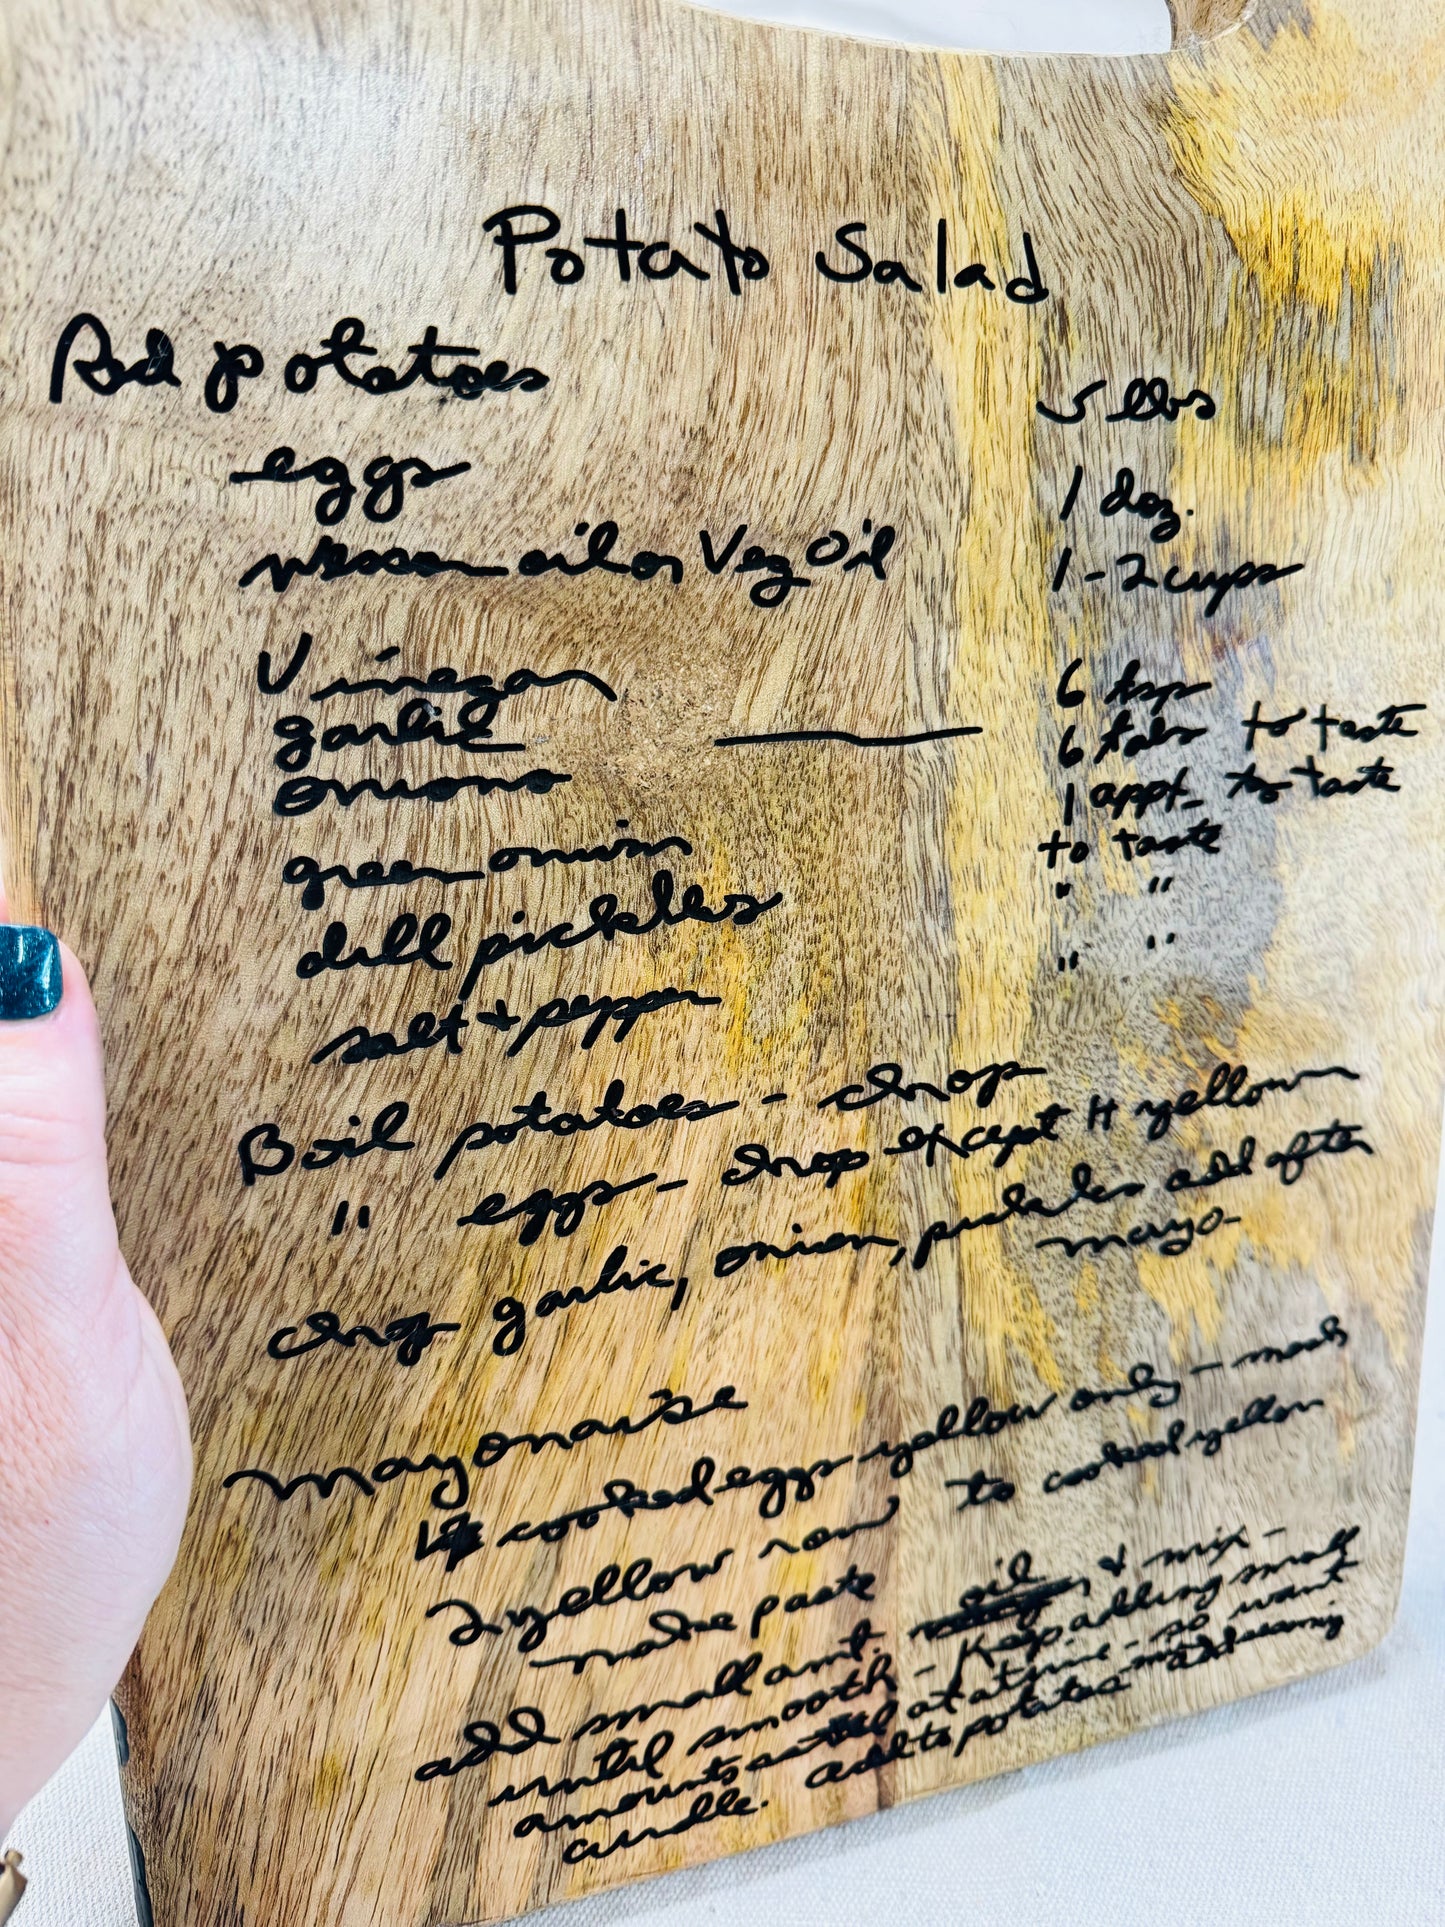 Potato Salad
Red potatoes 5 lbs
eggs 1 doz.
wesson oil or Veg Oil 1-2 cups
Vinegar 6 tsp
garlic 6 tabs to taste
onions 1 appt_ to taste
green onion to taste
dill pickles " "
salt + pepper " "
Boil potatoes - chop
" eggs - chop except 4 yellow
chop garlic, onion, pickles add after
mayo-
mayonaise
4 cooked eggs yellow only - mash
2 yellow raw to cooked yellow
make paste
add small amt. oil + mix -
until smooth - Keep adding small
amounts at a time - so wont
curdle. add to potatoes add